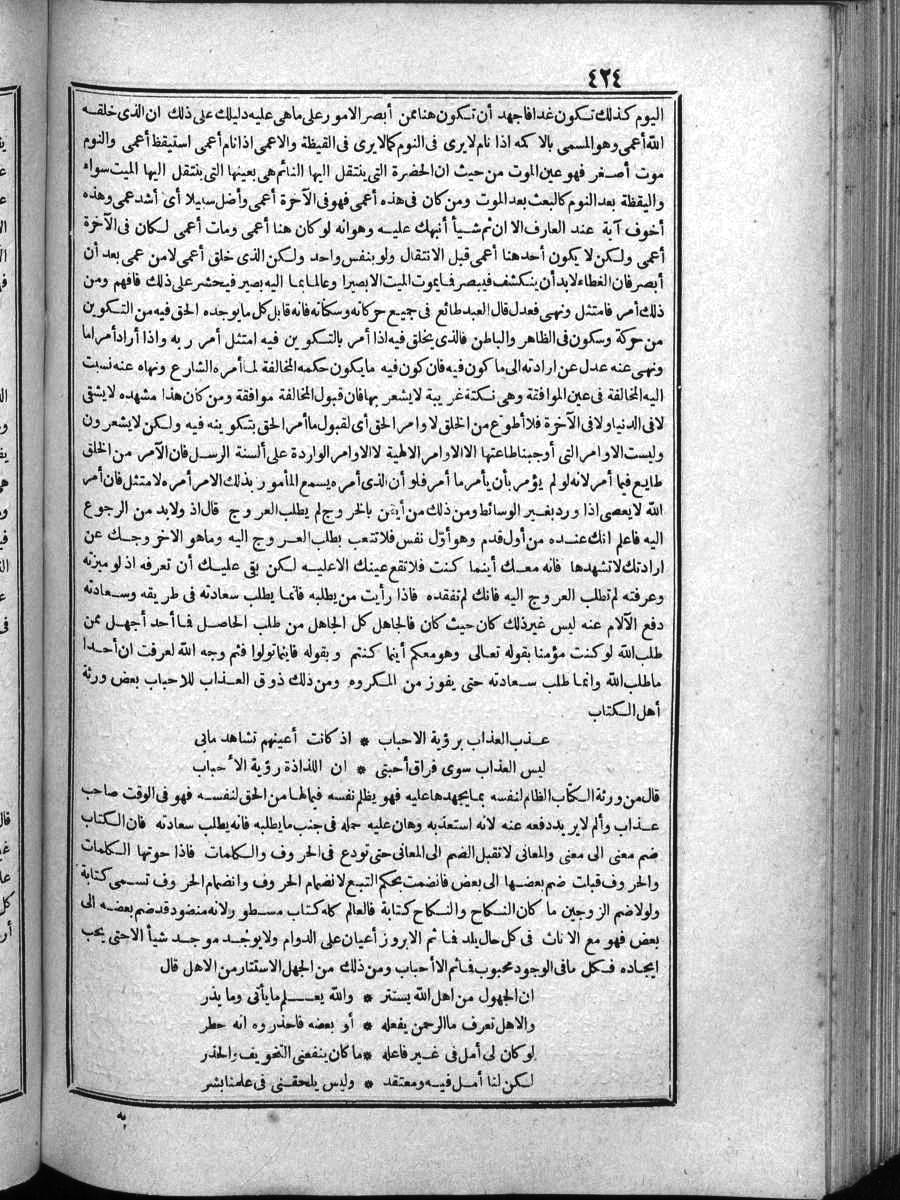 ٤٢٤
اليوم كذلك تكون غدا فاجهد أن تكون هنا ممن أبصر الامور على ماهى عليه دليلك على ذلك ان الذى خلقه
الله أعمى وهو المسمى بالاكمه اذا نام لا يرى فى النوم كمالا يرى فى اليقظة والاعمى اذا نام أعمى استيقظ أعمى والنوم
موت أصغر فهو عين الموت من حيث ان الحضرة التى ينتقل اليها النائم هى بعينها التى ينتقل اليها الميت سواء
واليقظة بعد النوم كالبعث بعد الموت ومن كان فى هذه أعمى فهو فى الآخرة أعمى وأضل سبيلا أى أشد عمى وهذه
أخوف آية عند العارف الا ان ثم شيأ أنبهك عليه وهو انه لو كان هنا أعمى ومات أعمى لكان فى الآخرة
أعمى ولكن لا يكون أحد هنا أعمى قبل الانتقال ولو بنفس واحد ولكن الذى خلق أعمى لا من عمى بعد أن
أبصر فان الغطاء لابد أن ينكشف فيبصر فما يموت الميت الا بصيرا وعالما بما اليه يصير فيحشر على ذلك فافهم ومن
ذلك أمر فامتثل ونهى فعدل قال العبد طائع فى جميع حركاته وسكناته فانه قابل كل ما يوجده الحق فيه من التكوين
من حركة وسكون فى الظاهر والباطن فالذى يخلق فيه اذا أمر بالتكوين فيه امتثل أمر ربه واذا أراد أمراما
ونهى عنه عدل عن ارادته الى ما كون فيه فان كون فيه ما يكون حكمه المخالفة لما أمره الشارع ونهاه عنه نسبت
اليه المخالفة فى عين الموافقة وهى نكتة غريبة لا يشعر بها فان قبول المخالفة موافقة ومن كان هذا مشهده لا يشقى
لا فى الدنيا ولا فى الآخرة فلا أطوع من الخلق لاوامر الحق أى لقبول ما أمر الحق بتكوينه فيه ولكن لا يشعرون
وليست الاوامر التى أوجبنا طاعتها الا الاوامر الالهية لا الاوامر الواردة على ألسنة الرسل فان الآمر من الخلق
طايع فيما أمر لانه لو لم يؤمر بأن يأمر ما أمر فلو أن الذى أمره يسمع المأمور بذلك الامر أمره لامتثل فان أمر
الله لا يعصى اذا ورد بغير الوسائط ومن ذلك من أيقن بالخروج لم يطلب العروج قال اذ ولابد من الرجوع
اليه فاعلم انك عنده من أول قدم وهو أول نفس فلا تتعب بطلب العروج اليه وما هو الا خروجك عن
ارادتك لا تشهدها فانه معك أينما كنت فلا تقع عينك الا عليه لكن بقى عليك أن تعرفه اذ لو ميزته
وعرفته لم تطلب العروج اليه فانك لم تفقده فاذا رأيت من يطلبه فانما يطلب سعادته فى طريقه وسعادته
دفع الآلام عنه ليس غير ذلك كان حيث كان فالجاهل كل الجاهل من طلب الحاصل فما أحد أجهل ممن
طلب الله لو كنت مؤمنا بقوله تعالى وهو معكم أينما كنتم وبقوله فاينما تولوا فثم وجه الله لعرفت ان أحدا
ما طلب الله وانما طلب سعادته حتى يفوز من المكروه ومن ذلك ذوق العذاب للاحباب بعض ورثة
أهل الكتاب
عذب العذاب برؤية الاحباب * اذ كانت أعينهم تشاهد مابى
ليس العذاب سوى فراق أحبتى * ان اللذاذة رؤية الأحباب
قال من ورثة الكتاب الظالم لنفسه بما يجهدها عليه فهو يظلم نفسه فيما لها من الحق لنفسه فهو فى الوقت صاحب
عذاب وألم لا يريد دفعه عنه لانه استعذبه وهان عليه حمله فى جنب ما يطلبه فانه يطلب سعادته فان الكتاب
ضم معنى الى معنى والمعانى لا تقبل الضم الى المعانى حتى تودع فى الحروف والكلمات فاذا حوتها الكلمات
والحروف قبلت ضم بعضها الى بعض فانضمت بحكم التبع لانضمام الحروف وانضمام الحروف تسمى كتابة
ولولا ضم الزوجين ما كان النكاح والنكاح كتابة فالعالم كله كتاب مسطور لانه منضود قد ضم بعضه الى
بعض فهو مع الاناث فى كل حال يلد فما ثم الا بروز أعيان على الدوام ولا يوجد موجد شيأ الا حتى يحب
ايجاده فكل ما فى الوجود محبوب فما ثم الا أحباب ومن ذلك من الجهل الاستتار من الاهل قال
ان الجهول من اهل الله يستتر * والله يعلم ما يأتى وما يذر
والاهل تعرف ما الرحمن يفعله * أو بعضه فاحذروه انه خطر
لو كان لى أمل فى غير فاعله * ما كان ينفعنى التخويف والحذر
لكن لنا أمل فيه ومعتقد * وليس يلحقنى فى علمنا بشر
به